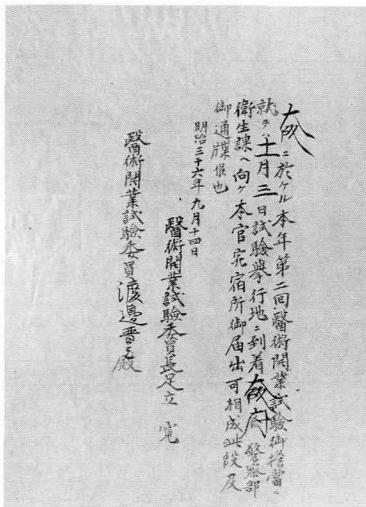 大阪ニ於ケル本年第二回醫術開業試驗御擔當ニ
就テハ十一月三日試驗擧行地ニ到着大阪府警察部
衛生課ヘ向ケ本官宛宿所御届出可相成此段及
御通牒候也
明治三十六年九月十四日
醫術開業試驗委員長足立寛
醫術開業試驗委員渡邊晋三殿